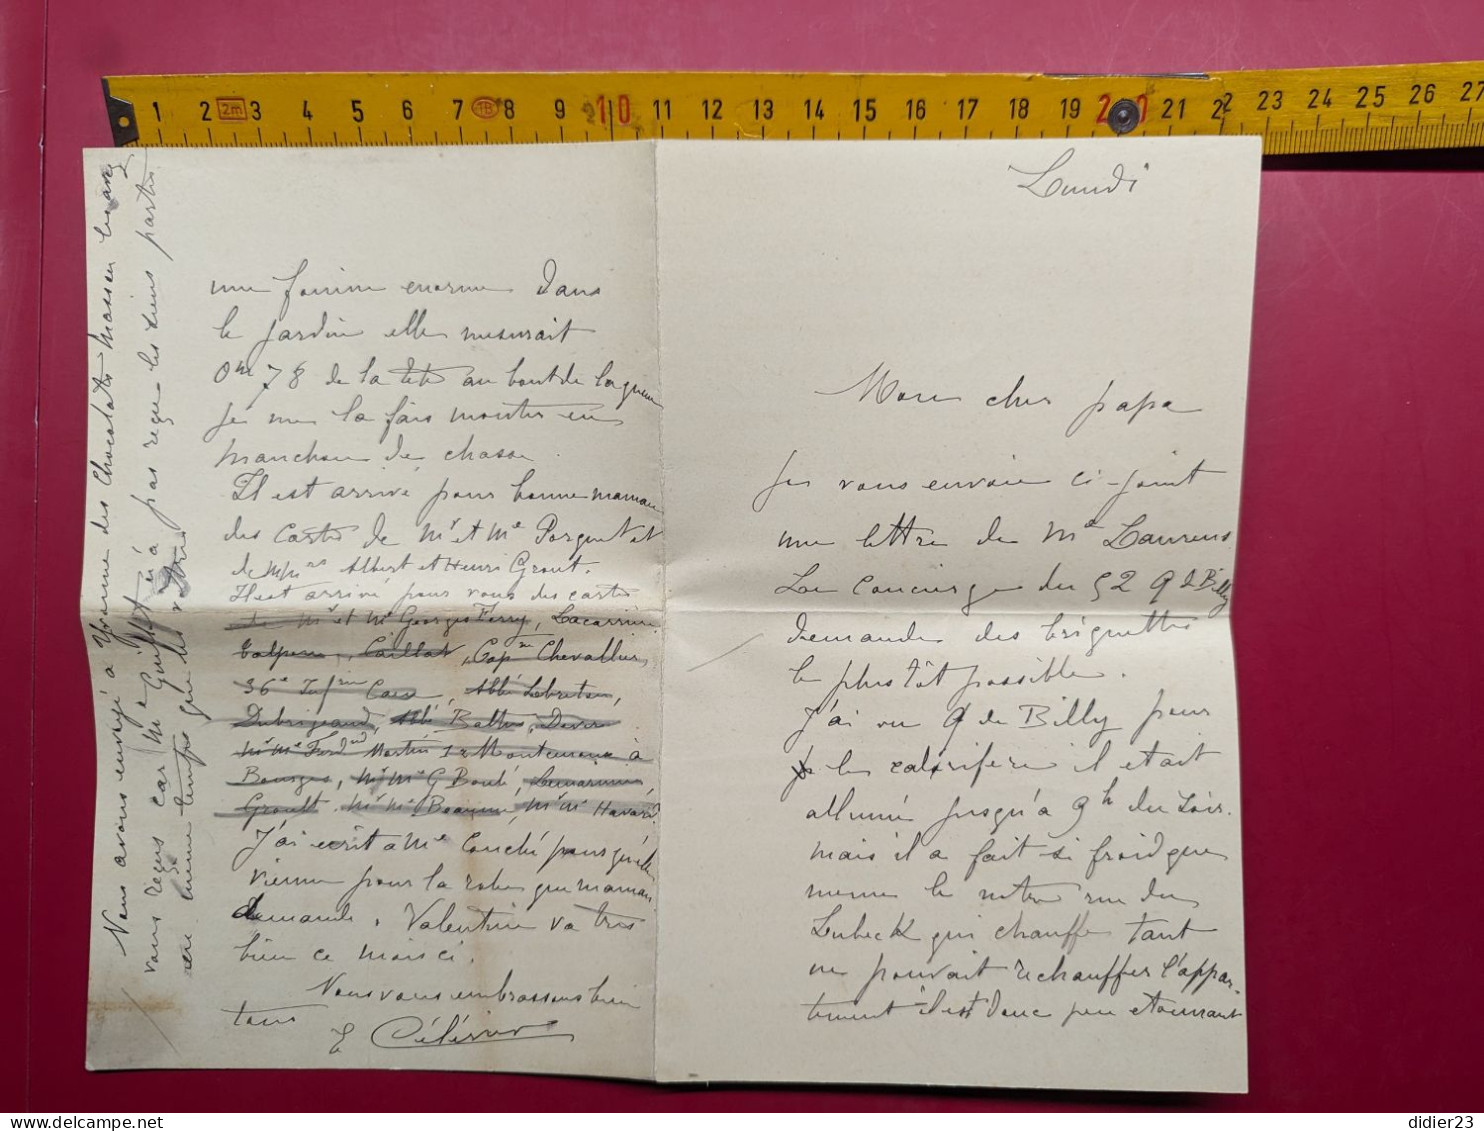 Lundi
Mon cher papa
Je vous envoie ci-joint
une lettre de Me Laurens
La concierge du 52 Q de Billy
demande des briquettes
le plus tôt possible.
J'ai vu Q de Billy pour
le calorifère il était
allumé jusqu'à 9h du soir.
mais il a fait si froid que
meme le notre rue de
Lubeck qui chauffe tant
ne pouvait rechauffer l'appar-
tement il est donc peu etonnant
une fouine enorme dans
le jardin elle mesurait
0m78 de la tete au bout de la queue
je me la fais monter en
manchon de chasse
Il est arrivé pour bonne maman
des cartes de Mr et Me Porquet et
de MMrs Albert et Henri Grout.
Il est arrivé pour vous des cartes
de Mr et Me Georges Ferry, Lacarrière
Galpern, Caillat, Capne Chevallier,
36e Infrie Caen, Abbé Lebreton,
Dubrigeaud, Abbé Batte,
Mr Me Ferdnd Martin 12 Montcenoux à
Bourges, Mr Me G Boulé,
Groult Mr Me Beaume, Mr Me Havard
J'ai ecrit a Me Couché pour qu'elle
vienne pour la robe que maman
demande. Valentine va tres
bien ce mois ci.
Nous vous embrassons bien
tous
E Célérier
Nous avons envoyé à Yvonne des chocolats Masson les avez
vous reçus car Me Guillot n'a pas reçu les siens partis
en meme temps que les votres
1 2 2m 3 4 5 6 7 TB 8 9 10 11 12 13 14 15 16 17 18 19 20 21 22 23 24 25 26 27
didier23